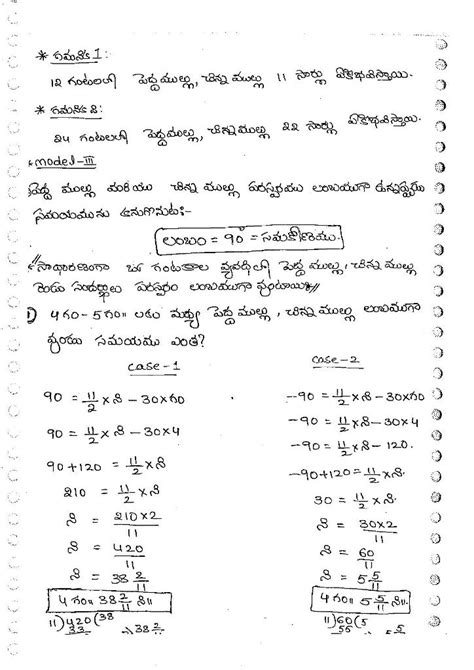 * గమనిక 1:
12 గంటలలో పెద్దముల్లు, చిన్నముల్లు 11 సార్లు ఏకీభవిస్తాయి.
* గమనిక 2:
24 గంటలలో పెద్దముల్లు, చిన్నముల్లు 22 సార్లు ఏకీభవిస్తాయి.
* Model-III
పెద్ద ముల్లు మరియు చిన్న ముల్లు పరస్పరము లంబముగా ఉన్నప్పుడు
సమయమును కనుగొనుట:-
లంబం = 90° = సమకోణము
// సాధారణంగా ఒక గంటకాల వ్యవధిలో పెద్దముల్లు, చిన్నముల్లు
రెండు సందర్భాలు పరస్పరం లంబముగా వుంటాయి //
1) 4గం-5గం॥ ల మధ్య పెద్దముల్లు, చిన్నముల్లు లంబముగా
వుండు సమయము ఎంత?
case-1
90 = 11/2 × ని - 30×గం
90 = 11/2 × ని - 30×4
90+120 = 11/2 × ని
210 = 11/2 × ని
ని = 210×2/11
ని = 420/11
ని = 38 2/11
4 గం॥ 38 2/11 ని॥
11)420(38
33
case-2
-90 = 11/2 × ని - 30×గం
-90 = 11/2 × ని - 30×4
-90 = 11/2 × ని - 120.
-90+120 = 11/2 × ని.
30 = 11/2 × ని.
ని = 30×2/11
ని = 60/11
ని = 5 5/11
4 గం॥ 5 5/11 ని॥.
11)60(5
55